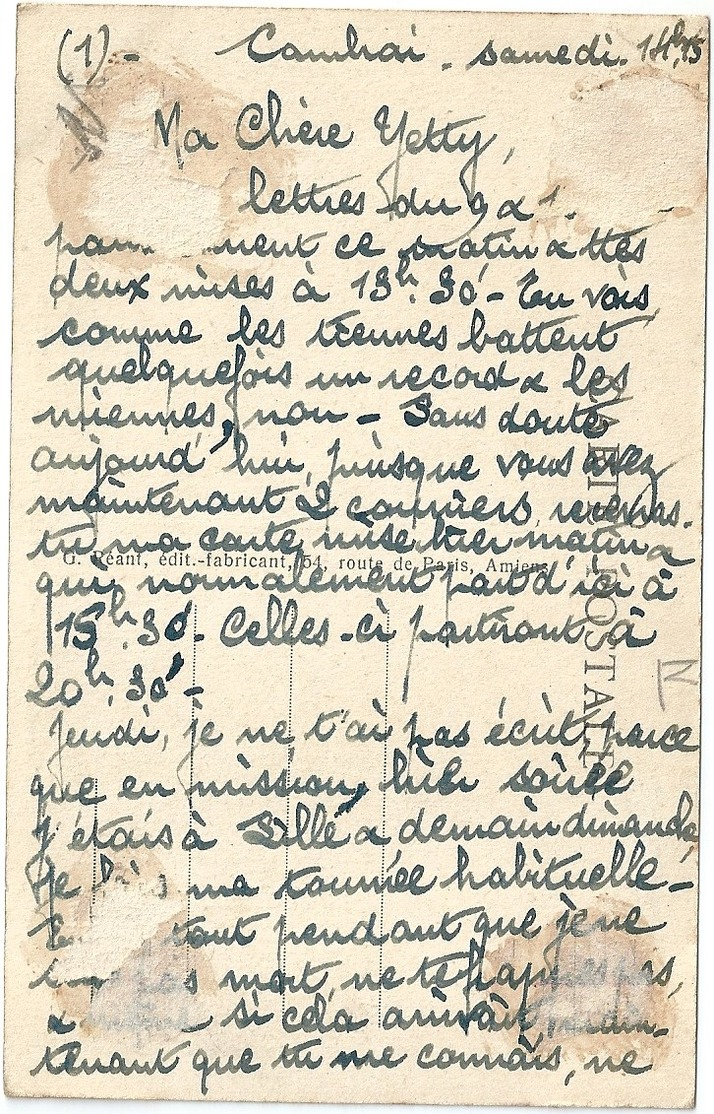 (1) - Cambrai - samedi 14h,15
Ma Chère Yetty,
lettres du 9 &
ce matin & ttes
deux mises à 13h.30' - Tu vois
comme les tiennes battent
quelquefois un record & les
miennes, non - Sans doute
aujourd'hui, puisque vous avez
maintenant 2 courriers, recevras-
tu ma carte mise hier matin &
G. Réant, édit.-fabricant, 54, route de Paris, Amiens
qui normalement part d'ici à
15h.30' - Celles-ci partiront à
20h.30' -
CARTE POSTALE
IV
Jeudi, je ne t'ai pas écrit, parce
que en mission, hier soirée
j'étais à & demain dimanche
je fais ma tournée habituelle -
tout pendant que je ne
pas mort, ne te frappes pas,
& même si cela arrivait, main-
tenant que tu me connais, ne